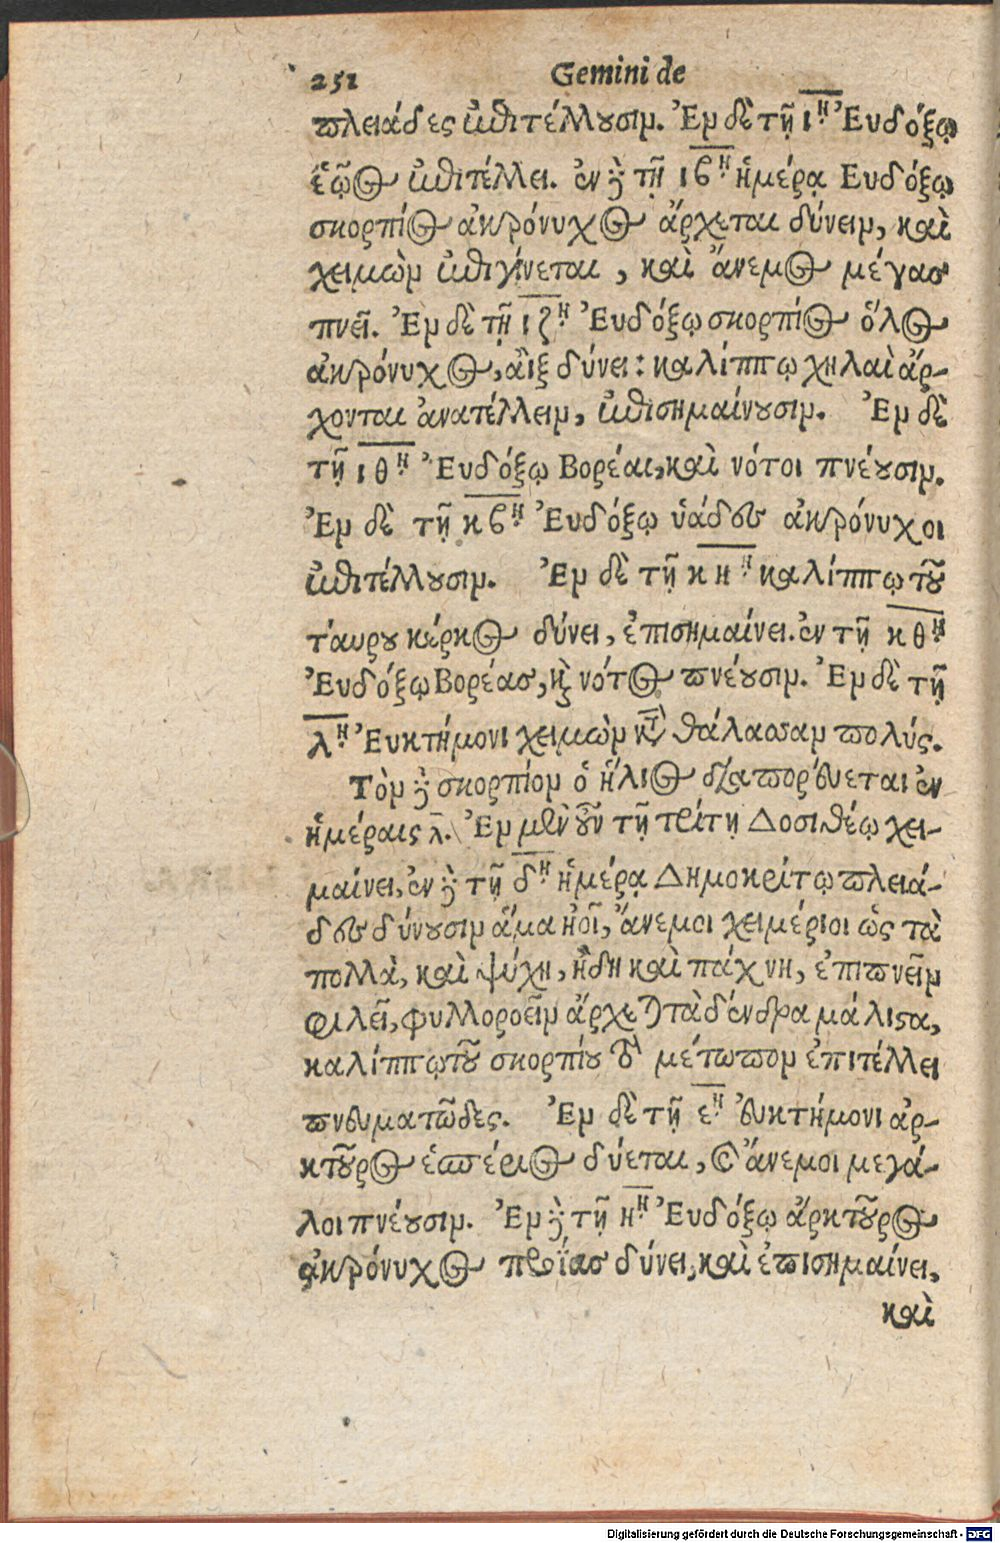 251 Gemini de
πλειάδες ἐπιτέλλουσιν. Ἐν δὲ τῇ ιῃ Ἐυδόξῳ
ἑῷος ἐπιτέλλει. ἐν δὲ τῇ ιβῃ ἡμέρᾳ Ευδόξῳ
σκορπίος ἀκρόνυχος ἄρχεται δύνειν, καὶ
χειμὼν ἐπιγίνεται, καὶ ἄνεμος μέγας
πνεῖ. Ἐν δὲ τῇ ιζῃ Ἐυδόξῳ σκορπίος ὅλος
ἀκρόνυχος, ἂιξ δύνει: καλίππῳ χηλαὶ ἄρ-
χονται ἀνατέλλειν, ἐπισημαίνουσιν. Ἐν δὲ
τῇ ιθῃ Ἐυδόξῳ Βορέαι, καὶ νότοι πνέουσιν.
Ἐν δὲ τῇ κβῃ Ἐυδόξῳ ὑάδες ἀκρόνυχοι
ἐπιτέλλουσιν. Ἐν δὲ τῇ κηῃ καλίππῳ τοῦ
ταύρου κέρκος δύνει, ἐπισημαίνει. ἐν τῇ κθῃ
Ἐυδόξῳ Βορέας, καὶ νότος πνέουσιν. Ἐν δὲ τῇ
λῃ Ἐυκτήμονι χειμὼν κατὰ θάλασσαν πολύς.
Τὸν δὲ σκορπίον ὁ ἥλιος διαπορεύεται ἐν
ἡμέραις λ. Ἐν μὲν οὖν τῇ τρίτῃ Δοσιθέῳ χει-
μαίνει, ἐν δὲ τῇ δῃ ἡμέρᾳ Δημοκρίτῳ πλειά-
δες δύνουσιν ἅμα ἠοῖ, ἄνεμοι χειμέριοι ὡς τὰ
πολλὰ, καὶ ψύχη, ἤδη καὶ πάχνη, ἐπιπνεῖν
φιλεῖ, φυλλοροεῖν ἄρχεται τὰ δένδρα μάλιστα,
καλίππῳ τοῦ σκορπίου τὸ μέτωπον ἐπιτέλλει
πνευματῶδες. Ἐν δὲ τῇ εῃ ἐυκτήμονι ἀρ-
κτοῦρος ἑσπέριος δύεται, καὶ ἄνεμοι μεγά-
λοι πνέουσιν. Ἐν δὲ τῇ ηῃ Ἐυδόξῳ ἄρκτοῦρος
ἀκρόνυχος πρωΐας δύνει, καὶ ἐπισημαίνει,
καὶ
Digitalisierung gefördert durch die Deutsche Forschungsgemeinschaft - DFG